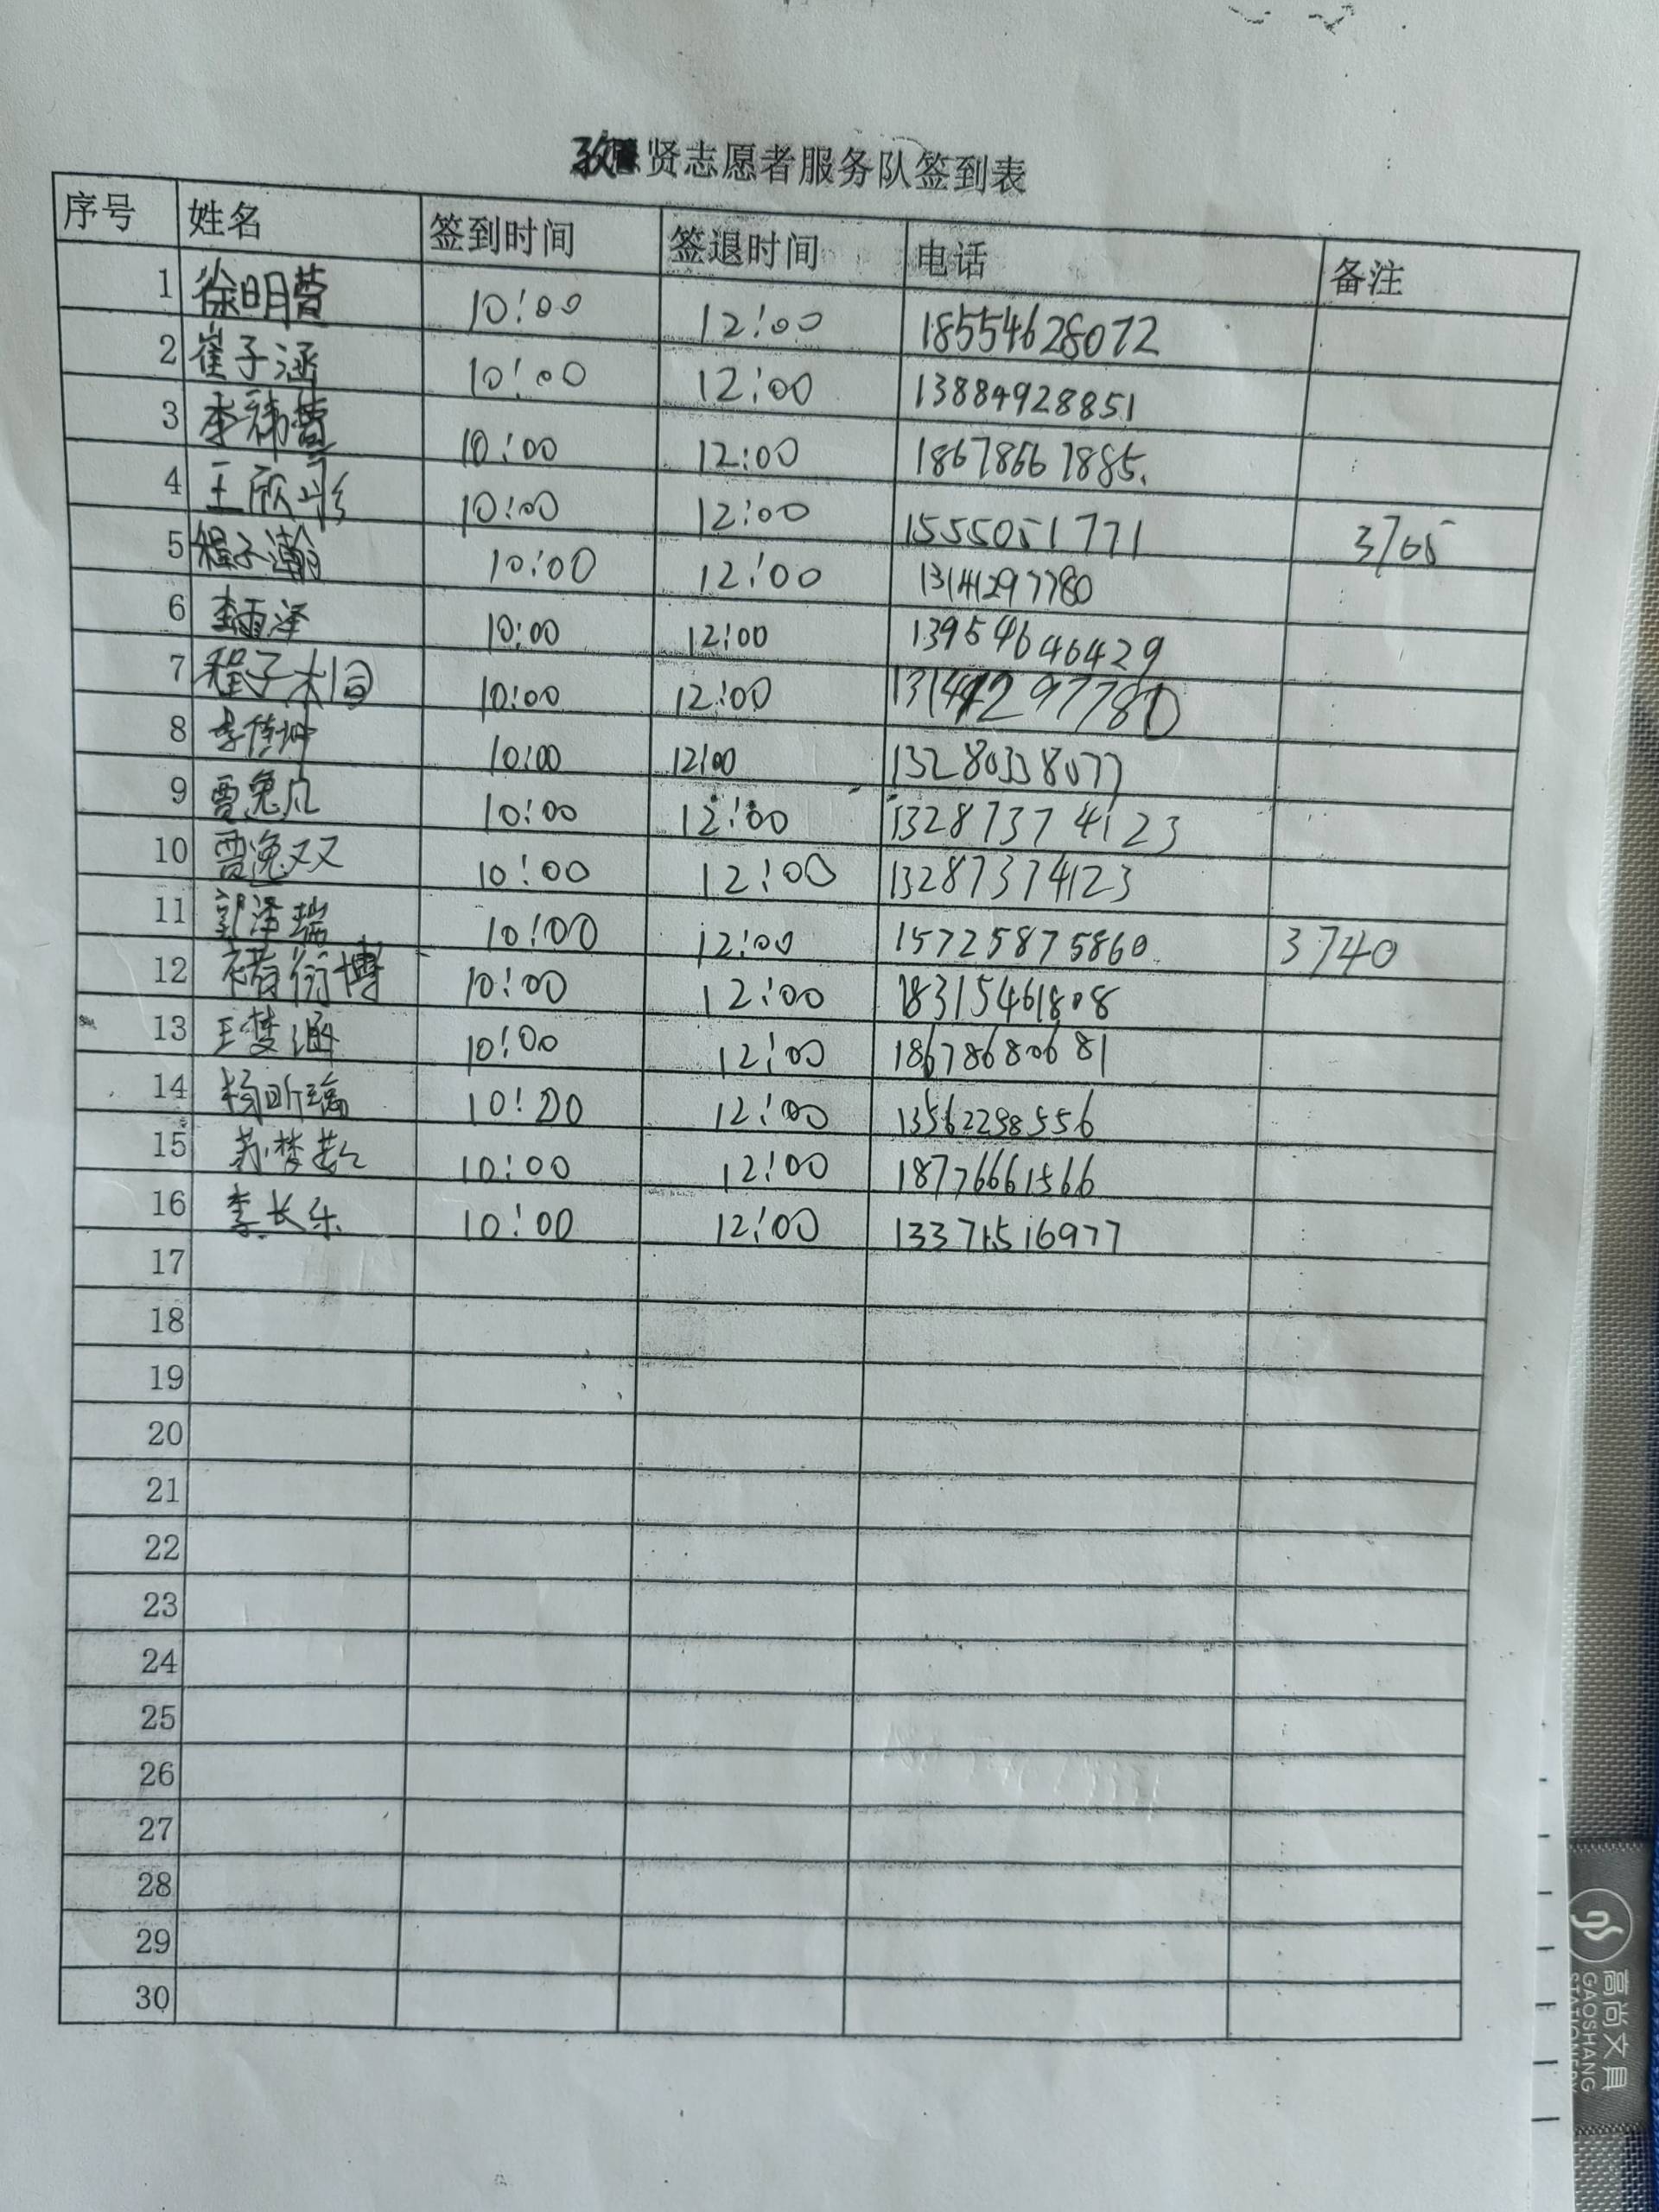 贤志愿者服务队签到表
序号 姓名 签到时间 签退时间 电话 备注
1 徐明萱 10:00 12:00 18554628072
2 崔子涵 10:00 12:00 13884928851
3 李祎萱 10:00 12:00 18678667885.
4 王欣彤 10:00 12:00 1555051771 3765
5 程子瀚 10:00 12:00 13141297780
6 李雨泽 10:00 12:00 13954646429
7 程子桐 10:00 12:00 13141297780
8 李传坤 10:00 12:00 13280338077
9 贾逸凡 10:00 12:00 13287374123
10 贾逸双 10:00 12:00 13287374123
11 郭泽瑞 10:00 12:00 15725875860 3740
12 褚衍博 10:00 12:00 18315461808
13 王梦涵 10:00 12:00 18678680681
14 杨昕瑞 10:00 12:00 13562298556
15 苏梦 10:00 12:00 18776661566
16 李长乐 10:00 12:00 13371516977
17
18
19
20
21
22
23
24
25
26
27
28
29
30
高尚文具
GAOSHANG
STATIONERY